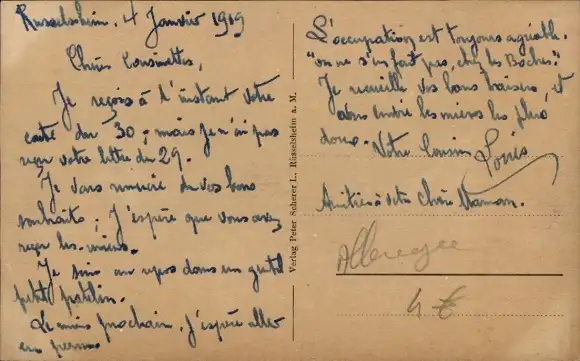 Russelsheim. 4 Janvier 1919
Chères Cousinettes,
Je reçois à l'instant votre
carte du 30; mais je n'ai pas
reçu votre lettre du 29.
Je vous remercie de vos bons
souhaits; J'espère que vous avez
reçu les miens.
Je suis au repos dans un gentil
petit patelin.
Le mois prochain, j'espère aller
en perme
L'occupation est toujours agréable.
"on ne s'en fait pas, chez les Boches."
Je recueille vos bons baisers, et
vous envoie les miens les plus
doux.
Votre Cousin Louis
Amitiés à votre Chère Maman.
Verlag Peter Scherer I., Rüsselsheim a. M.
Allemagne
4 €